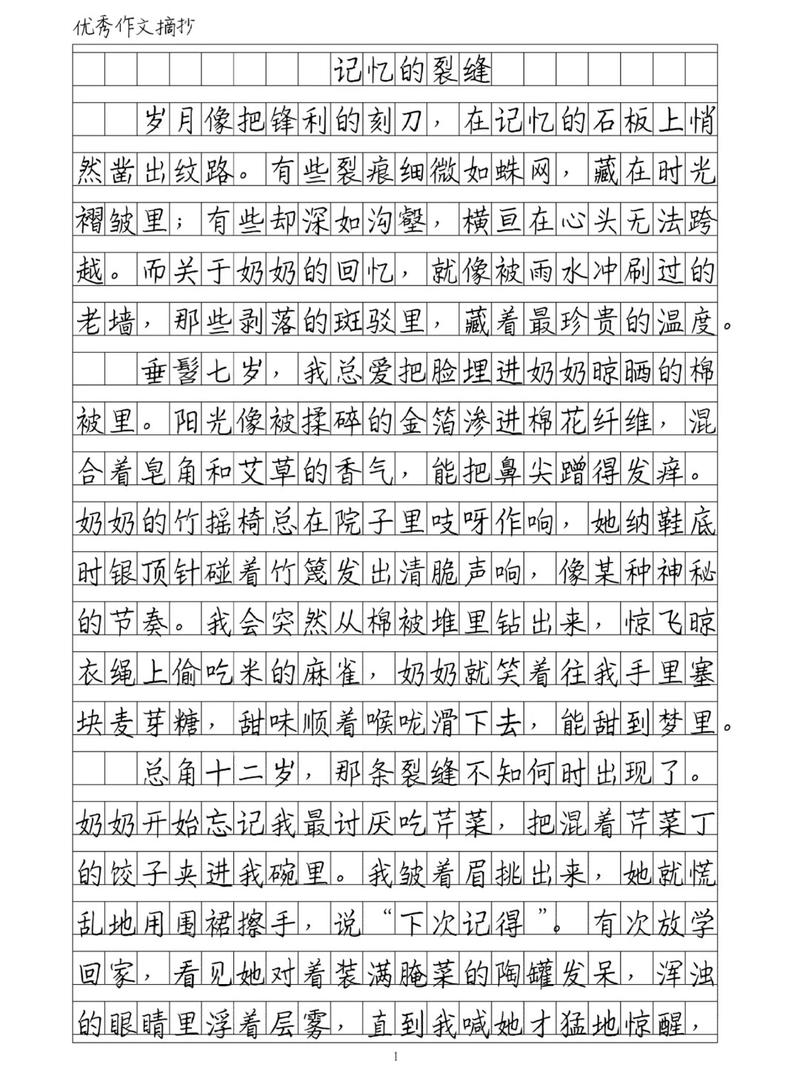 优秀作文摘抄
记忆的裂缝
岁月像把锋利的刻刀，在记忆的石板上悄
然凿出纹路。有些裂痕细微如蛛网，藏在时光
褶皱里；有些却深如沟壑，横亘在心头无法跨
越。而关于奶奶的回忆，就像被雨水冲刷过的
老墙，那些剥落的斑驳里，藏着最珍贵的温度。
垂髫七岁，我总爱把脸埋进奶奶晾晒的棉
被里。阳光像被揉碎的金箔渗进棉花纤维，混
合着皂角和艾草的香气，能把鼻尖蹭得发痒。
奶奶的竹摇椅总在院子里吱呀作响，她纳鞋底
时银顶针碰着竹篾发出清脆声响，像某种神秘
的节奏。我会突然从棉被堆里钻出来，惊飞晾
衣绳上偷吃米的麻雀，奶奶就笑着往我手里塞
块麦芽糖，甜味顺着喉咙滑下去，能甜到梦里。
总角十二岁，那条裂缝不知何时出现了。
奶奶开始忘记我最讨厌吃芹菜，把混着芹菜丁
的饺子夹进我碗里。我皱着眉挑出来，她就慌
乱地用围裙擦手，说“下次记得”。有次放学
回家，看见她对着装满腌菜的陶罐发呆，浑浊
的眼睛里浮着层雾，直到我喊她才猛地惊醒，
1